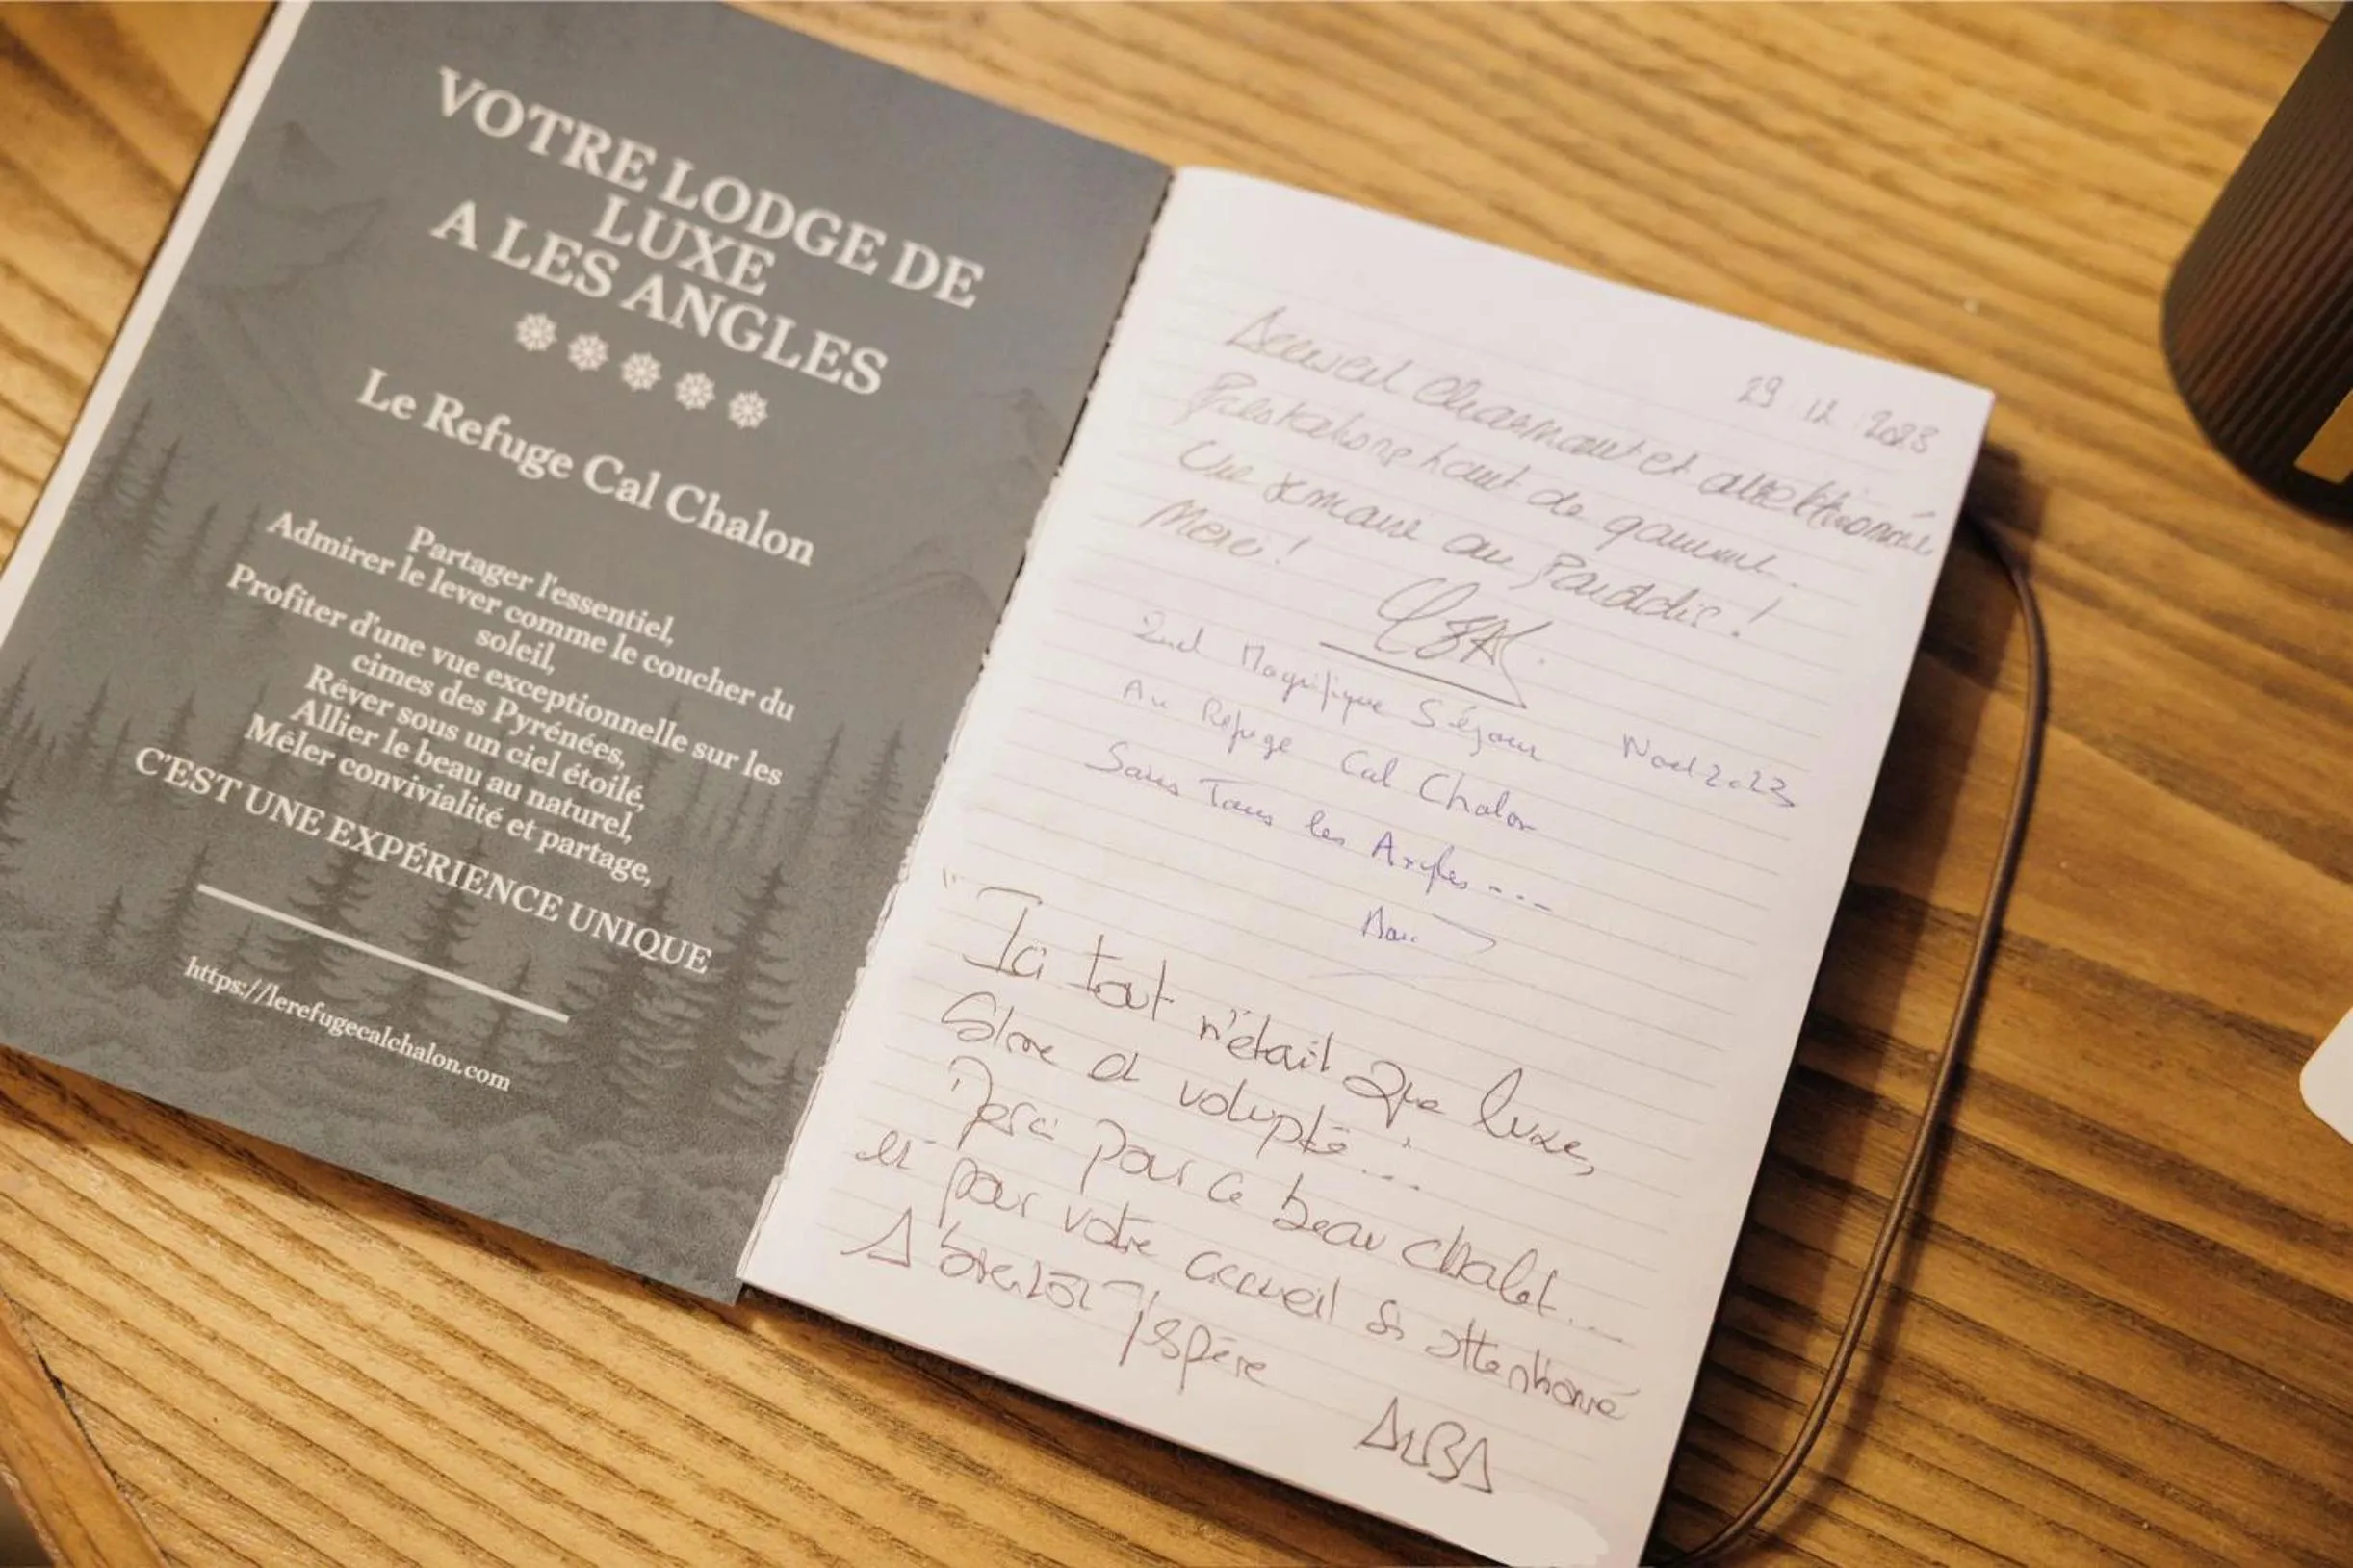 VOTRE LODGE DE
LUXE
A LES ANGLES
Le Refuge Cal Chalon
Partager l'essentiel,
Admirer le lever comme le coucher du
soleil,
Profiter d'une vue exceptionnelle sur les
cimes des Pyrénées,
Rêver sous un ciel étoilé,
Allier le beau au naturel,
Mêler convivialité et partage,
C'EST UNE EXPÉRIENCE UNIQUE
https://lerefugecalchalon.com
29 12 2023
Accueil Charmant et attentionné
Prestations haut de gamme.
Une semaine au Paradis !
Merci !
2nd Magnifique Séjour Noel 2023
Au Refuge Cal Chalon
Sous Tous les Angles ...
" Ici tout n'était que luxe,
Calme et volupté...
Merci pour ce beau chalet....
et pour votre accueil si attentionné
A bientôt j'espère
ALBA